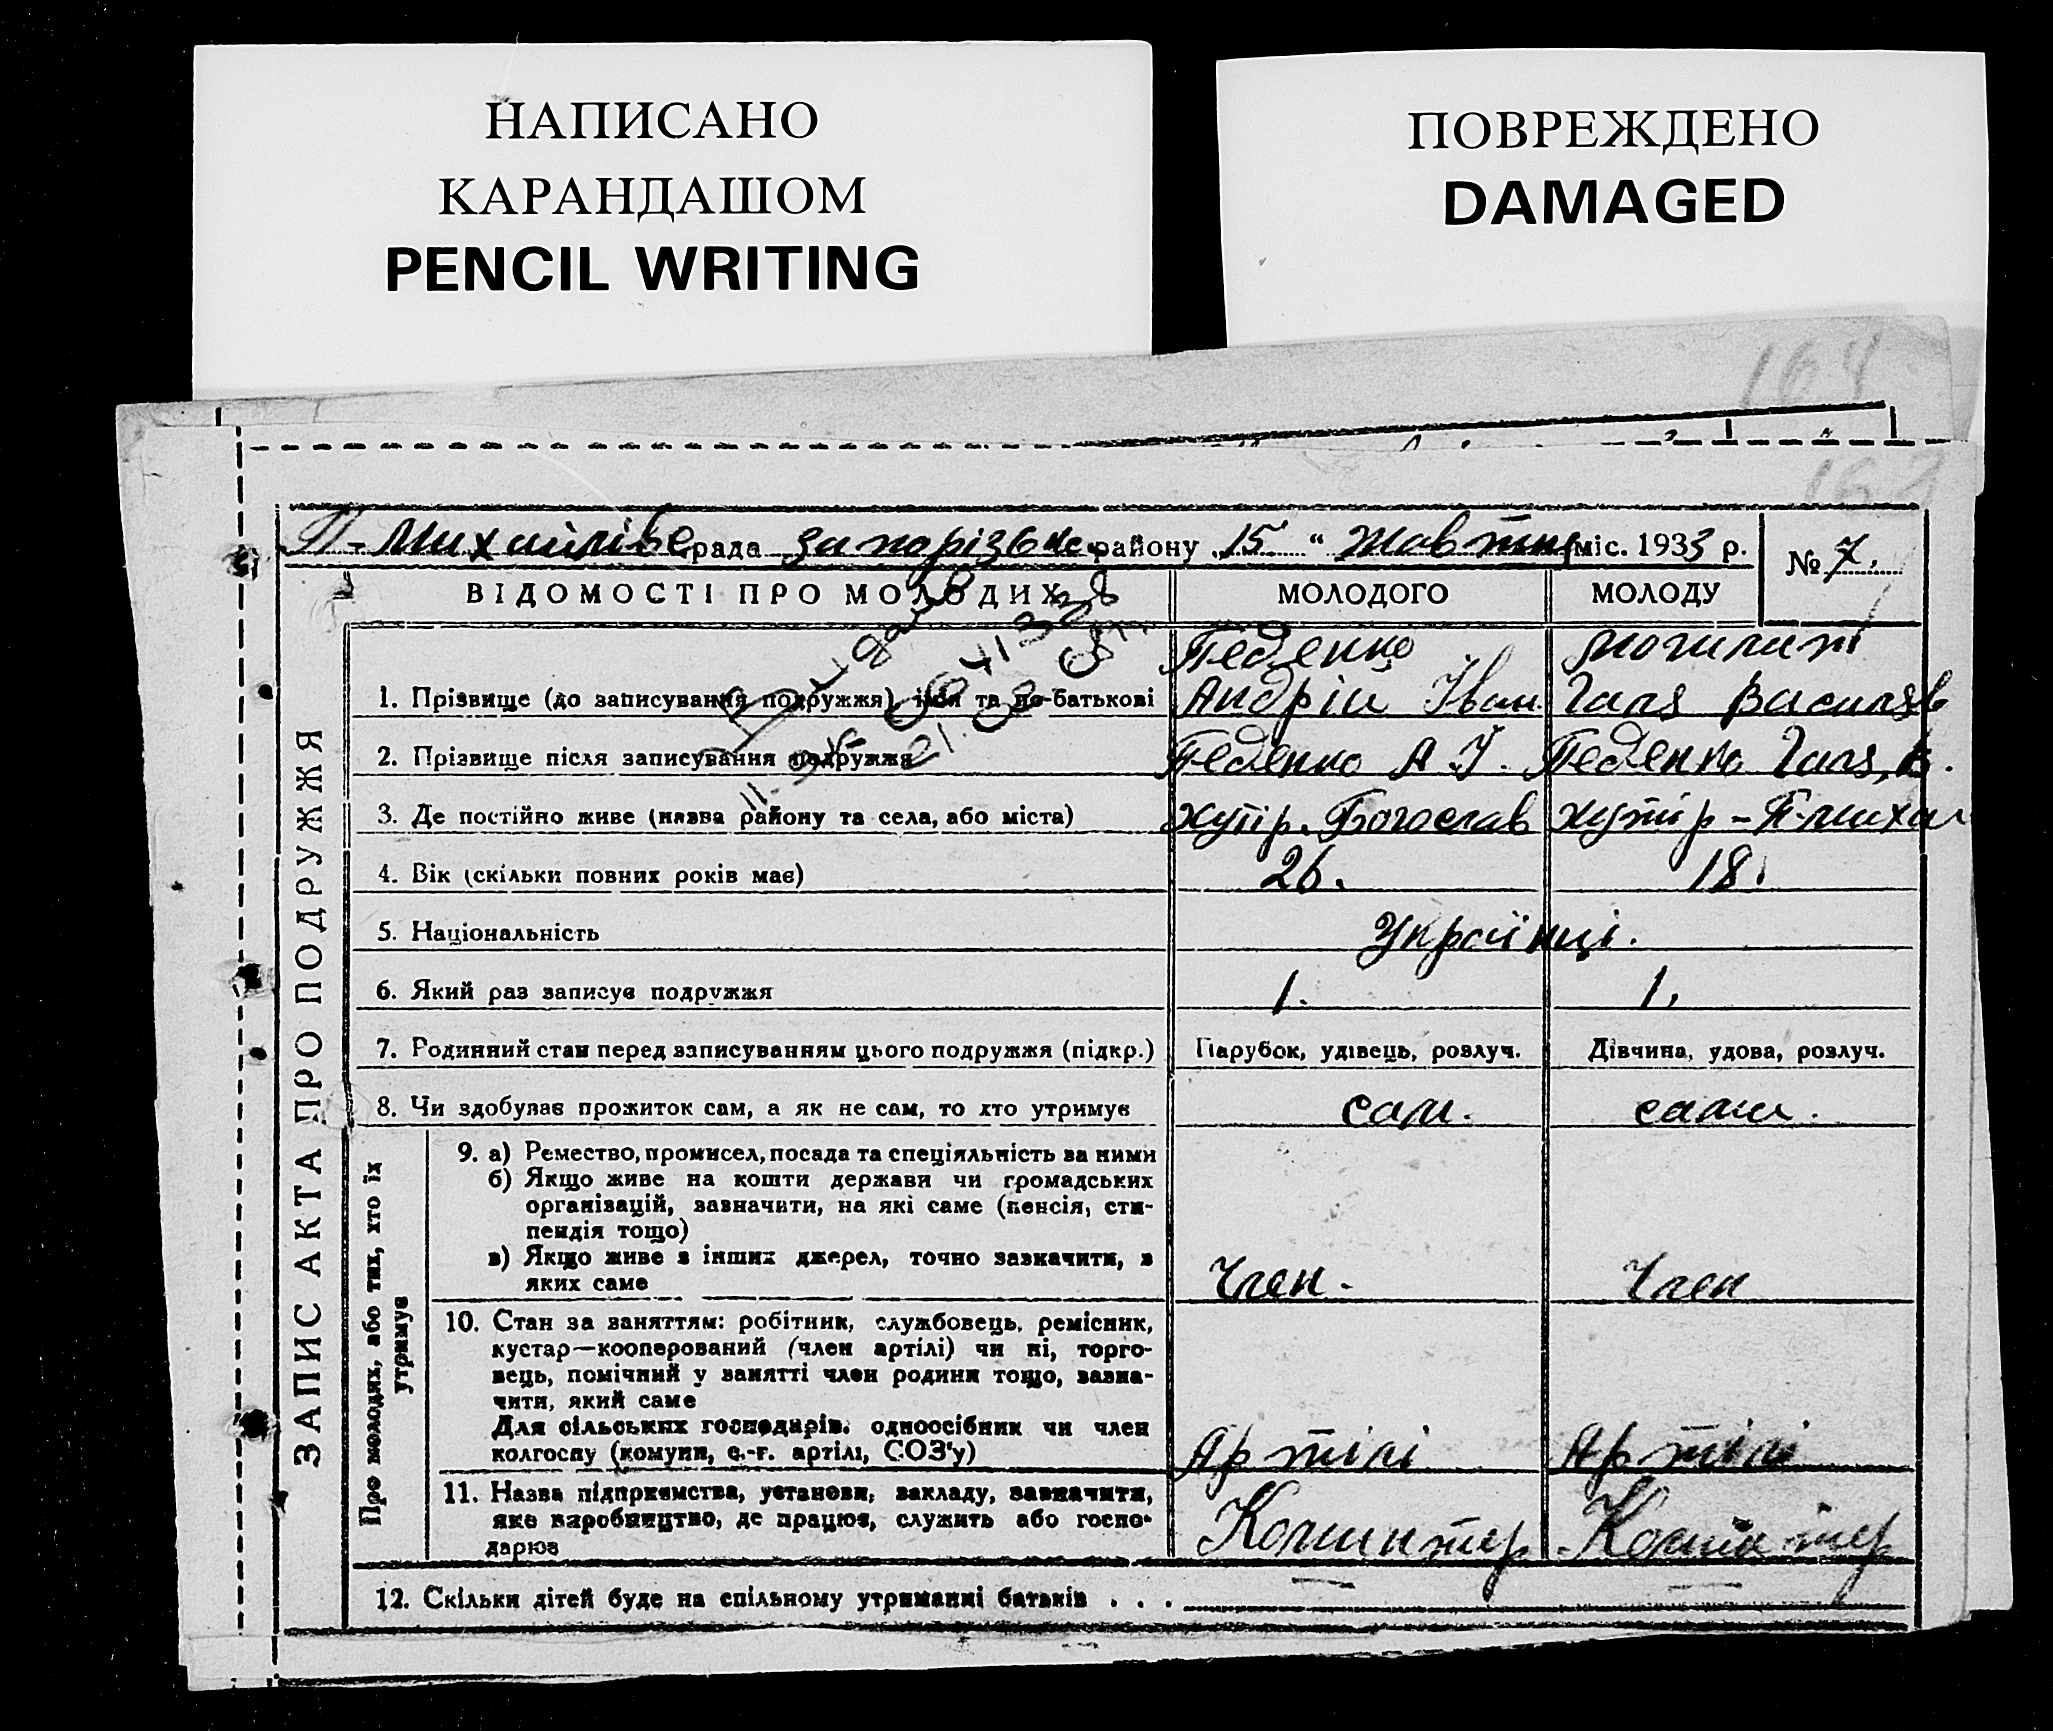 НАПИСАНО
КАРАНДАШОМ
PENCIL WRITING
ПОВРЕЖДЕНО
DAMAGED
164
163
П-Михайлівс рада Запорізьк району „15“ Жовтня міс. 1933 р.
№ 7.
ВІДОМОСТІ ПРО МОЛОДИХ МОЛОДОГО МОЛОДУ
ЗАПИС АКТА ПРО ПОДРУЖЖЯ
Педенко
1. Прізвище (до записування подружжя) імя та по-батькові Андрій Іван. Галя Василів
2. Прізвище після записування подружжя Педенко А. І. Педенко Галя, В.
3. Де постійно живе (назва району та села, або міста) хутір. Богослав хутір - П-михал
4. Вік (скільки повних років має) 26. 18.
5. Національність Українці.
6. Який раз записує подружжя 1. 1.
7. Родинний стан перед записуванням цього подружжя (підкр.) Парубок, удівець, розлуч. Дівчина, удова, розлуч.
8. Чи здобував прожиток сам, а як не сам, то хто утримує сам. сама.
Про молодих, або тих, хто їх
утримує
9. а) Ремество, промисел, посада та спеціяльність за ними
б) Якщо живе на кошти держави чи громадських
організацій, зазначити, на які саме (пенсія, сти-
пендія тощо)
в) Якщо живе з інших джерел, точно зазначити, з
яких саме Член. Член
10. Стан за заняттям: робітник, службовець, ремісник,
кустар—кооперований (член артілі) чи ні, торго-
вець, помічний у занятті член родини тощо, зазна-
чити, який саме
Для сільських господарів: одноосібник чи член
колгоспу (комуни, с.-г. артілі, СОЗ'у) Артілі Артілі
11. Назва підприємства, установи, закладу, зазначити,
яке виробництво, де працює, служить або госпо-
дарює Комінтер. Комінтер
12. Скільки дітей буде на спільному утриманні батьків . . . — —